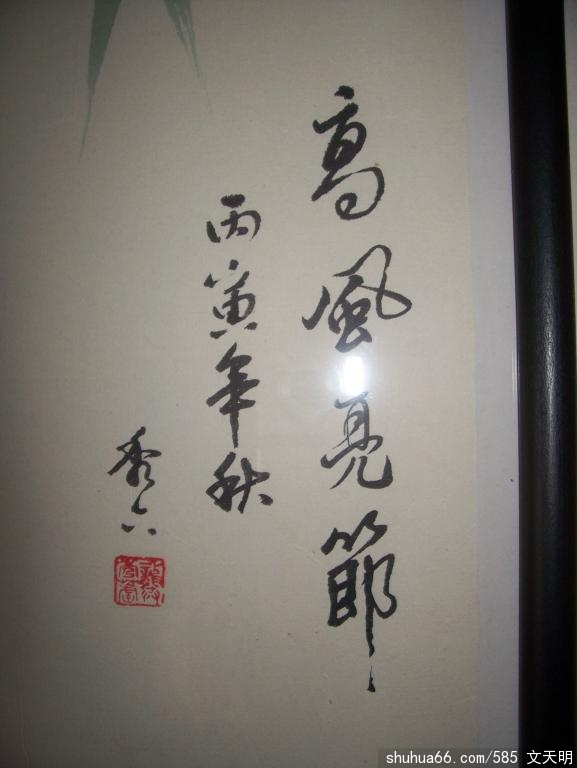 高風亮節
丙寅年秋
秀六
shuhua66.com/585 文天明